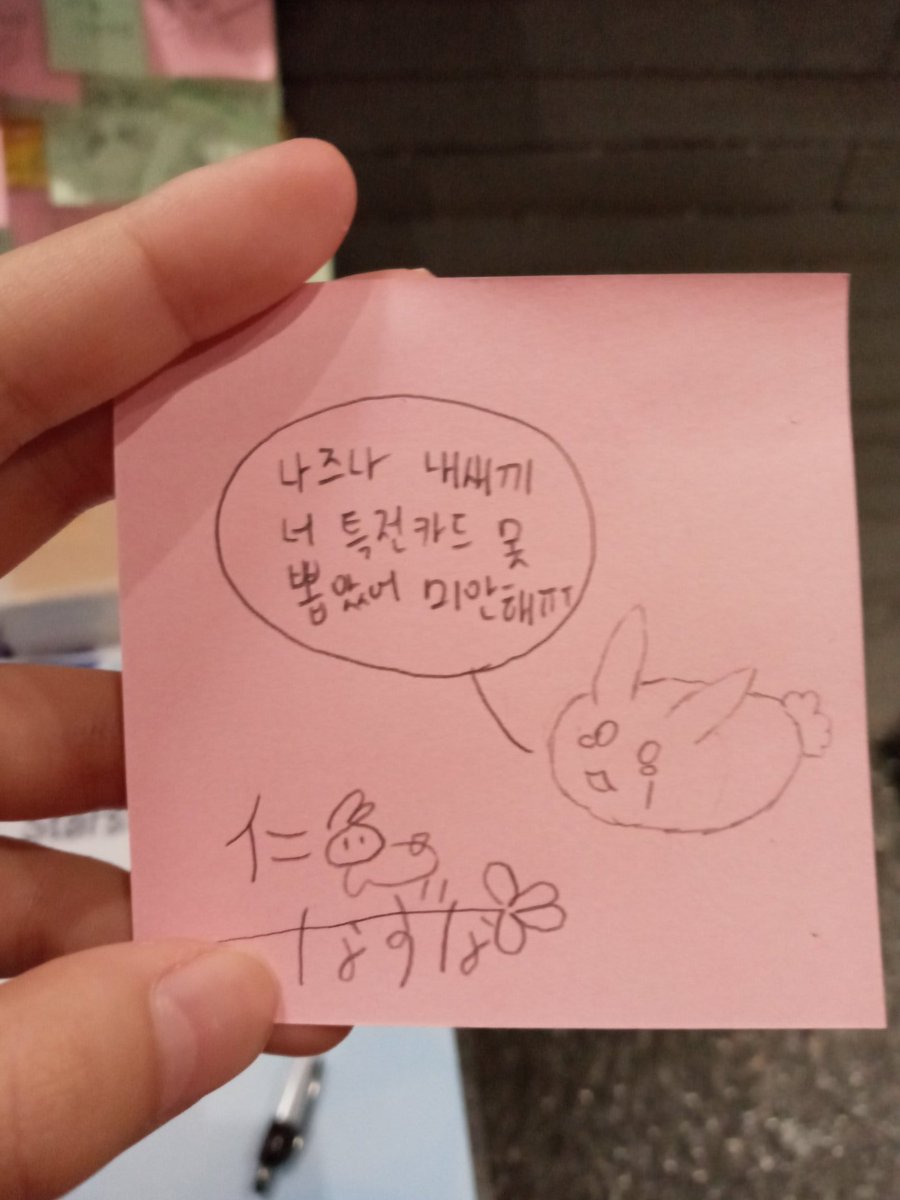 나즈나 내새끼
너 특전카드 못
뽑았어 미안해ㅠㅠ
仁
なずな